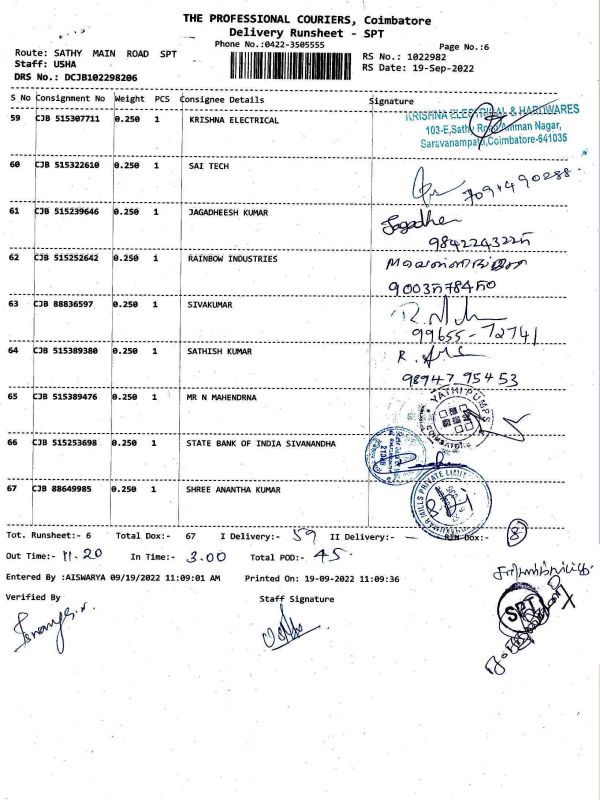 THE PROFESSIONAL COURIERS, Coimbatore
Delivery Runsheet - SPT
Phone No.:0422-3505555
Page No.:6
Route: SATHY MAIN ROAD SPT
RS No.: 1022982
Staff: USHA
RS Date: 19-Sep-2022
DRS No.: DCJB102298206
S No Consignment No Weight PCS Consignee Details Signature
59 CJB 515307711 0.250 1 KRISHNA ELECTRICAL
KRISHNA ELECTRICAL & HARDWARES
103-E, Sathy Road, Amman Nagar,
Saravanampatti, Coimbatore-641035
60 CJB 515322610 0.250 1 SAI TECH
61 CJB 515239646 0.250 1 JAGADHEESH KUMAR
Jagadhee
9842243225
62 CJB 515252642 0.250 1 RAINBOW INDUSTRIES
9003578450
63 CJB 88836597 0.250 1 SIVAKUMAR
99655-72741
64 CJB 515389380 0.250 1 SATHISH KUMAR
98947 95453
65 CJB 515389476 0.250 1 MR N MAHENDRNA
YATHI PUMPS
COIMBATORE
66 CJB 515253698 0.250 1 STATE BANK OF INDIA SIVANANDHA
67 CJB 88649985 0.250 1 SHREE ANANTHA KUMAR
MILLS PRIVATE LIMITED
Tot. Runsheet:- 6 Total Dox:- 67 I Delivery:- 59 II Delivery:- — RTN Dox:- 8
Out Time:- 11.20 In Time:- 3.00 Total POD:- 45
Entered By :AISWARYA 09/19/2022 11:09:01 AM Printed On: 19-09-2022 11:09:36
Verified By Staff Signature
SPT